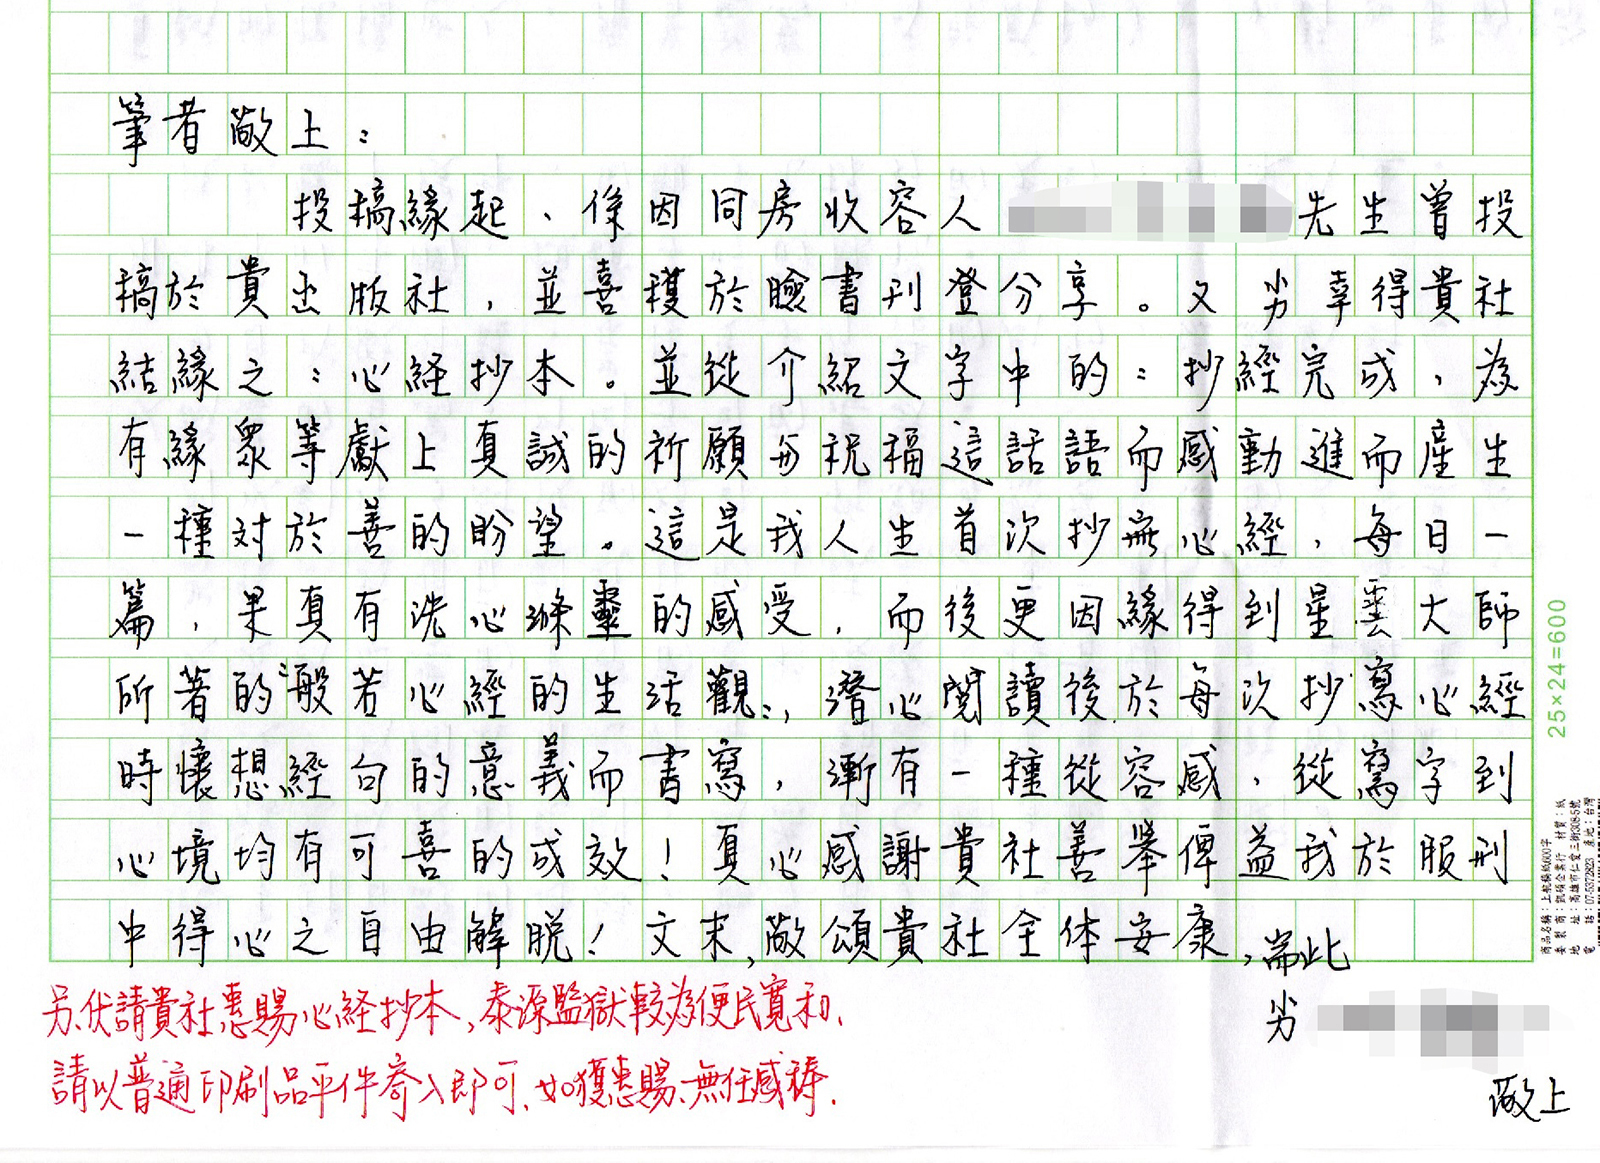 筆者敬上：
投搞緣起、係因同房收容人
先生曾投
搞於貴出版社，並喜獲於臉書刊登分享。又 劣幸得貴社
結緣之：心経抄本。並從介紹文字中的：抄經完成，為
有緣眾等獻上真誠的祈願与祝福這話語而感動進而產生
一種対於善的盼望。這是我人生首次抄寫心經，每日一
篇，果真有洗心滌靈的感受，而後更因緣得到星雲大師
所著的“般若心經的生活觀”，潛心閱讀後，於每次抄寫心經
時懷想經句的意義而書寫，漸有一種從容感，從寫字到
心境均有可喜的成效！真心感謝貴社善舉俾益我於服刑
中得心之自由解脫！文末，敬頌貴社全体安康，耑此
劣
敬上
另、伏請貴社惠賜心経抄本，泰源監獄較為便民寬和、
請以普通印刷品平件寄入即可、如獲惠賜、無任感禱.
25×24=600
商品名稱：上航稿紙600字
委製商：凱碩企業行 材質：紙
地址：高雄市仁愛三街308-5號
電話：07-5372823 產地：台灣